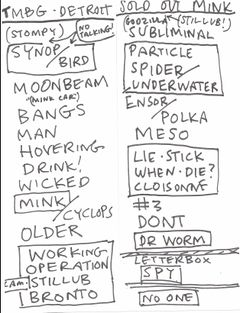 TMBG · DETROIT
SOLD OUT MINK
(STOMPY)
NO TALKING!
SYNOP/BIRD
MOONBEAM
(MINK CAR)
BANGS
MAN
HOVERING
DRINK!
WICKED
MINK/CYCLOPS
OLDER
WORKING
OPERATION
STILLUB
BRONTO
(GODZILLA) (STILLUB!)
SUBLIMINAL
PARTICLE
SPIDER/
UNDERWATER
ENSOR/
POLKA
MESO
LIE · STICK
WHEN · DIE?
CLOISONNÉ
#3
DONT
DR WORM
LETTERBOX
SPY
NO ONE